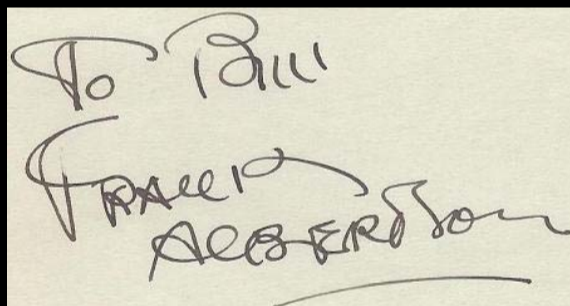 To Bill
Frank
Albertson